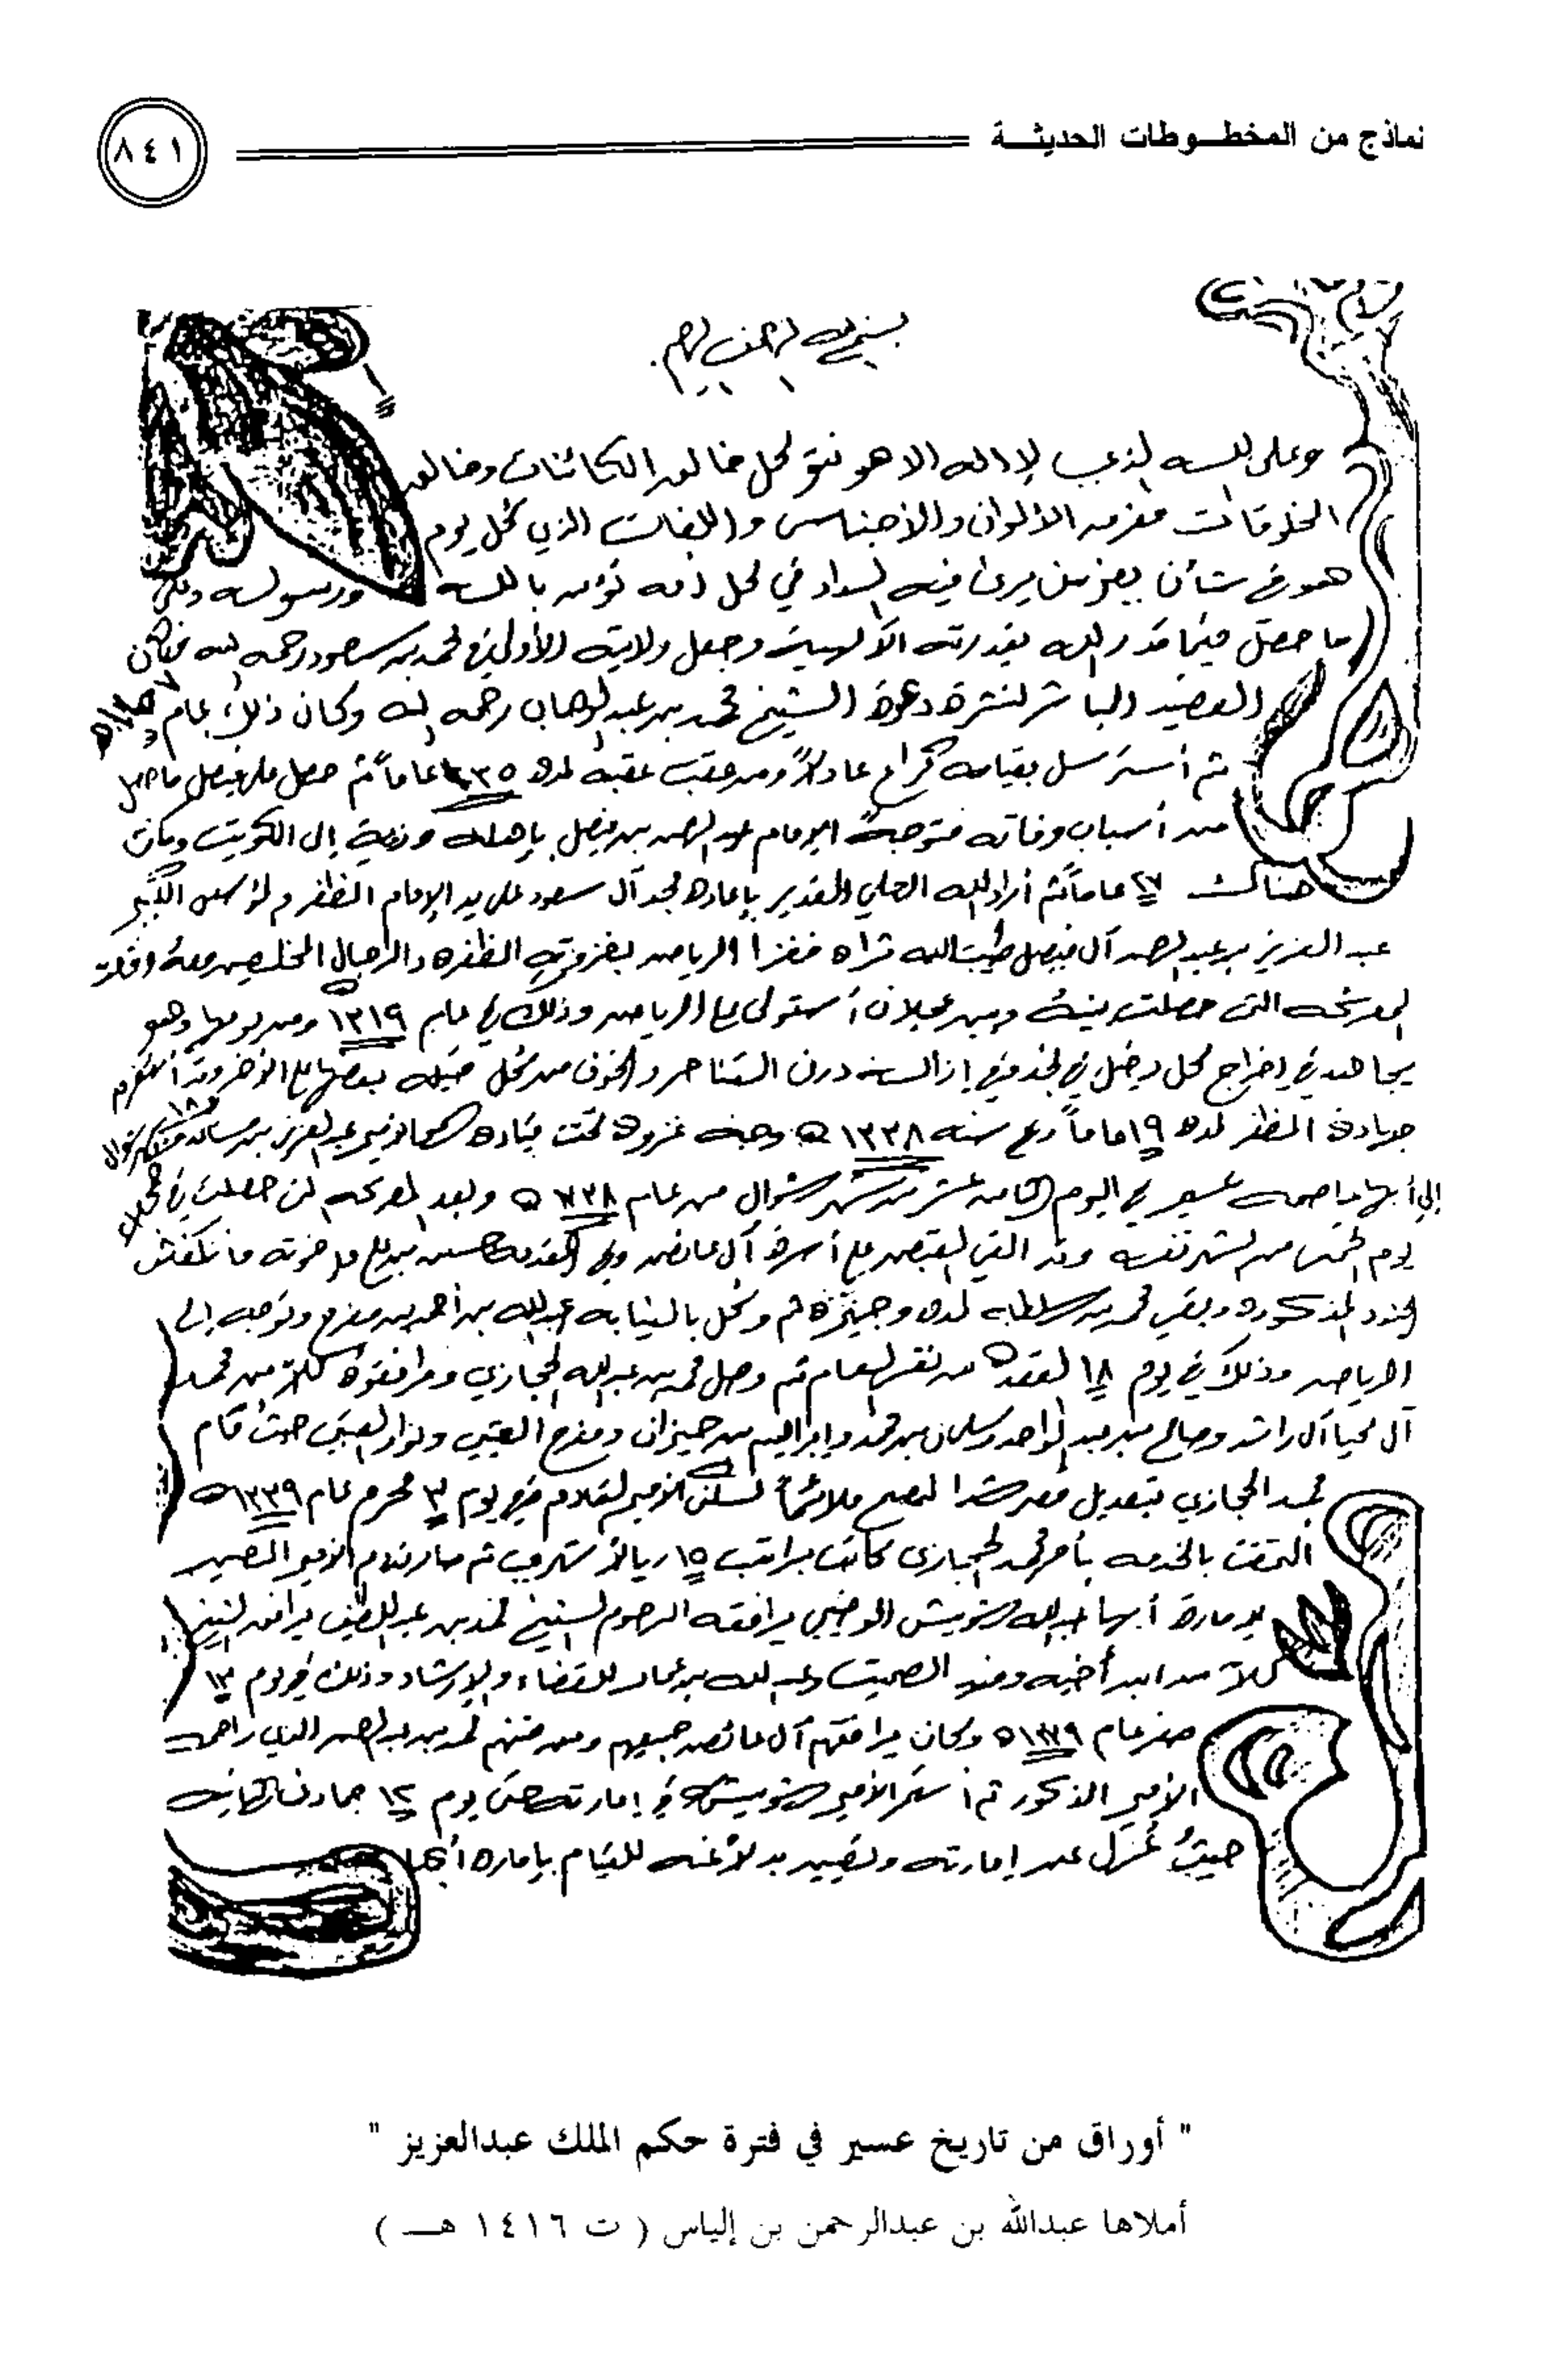 نماذج من المخطـــوطات الحديثـــة
٨٤١
بسم الله الرحمن الرحيم
وعلى الله الذي لا اله الا هو نتوكل خالق الكائنات وخالق
المخلوقات مفرق الألوان والأجناس واللغات الذي كل يوم
هو في شأن يعز من يرى فيه السداد في كل أمه تؤمن بالله ورسوله
ما حصل فيما قدر الله بقدرته الآلهية وجعل ولاية الأولى في محمد بن سعود رحمه الله فكان
العضيد المباشر لنشرة دعوة الشيخ محمد بن عبد الوهاب رحمه الله وكان ذلك بعام
ثم أسترسل بقيامه عادلاً ومن عقب عقبه لمدة عاماً ثم حصل على فيصل ما حصل
من أسباب وفاته متوجهً الإمام عبد الرحمن بن فيصل بإهله وذويه إلى الكويت وكان
هناك عاماً ثم أراد الله العلي القدير بإعادة مجد آل سعود على يد الإمام المظفر والمؤسس الكبير
عبد العزيز بن عبد الرحمن آل فيصل طيب الله ثراه فغزا الرياض بغزوته المظفره والرجال المخلصين معه
المعركه التي حصلت بينه وبين عجلان أستولى على الرياض وذلك في عام ١٣١٩ ومن يومها وهو
يجاهد في إخراج كل دخيل في نجد وفي إزالة درن التناحر والخوف من كل قبيله بعضها على الأخر
جهاده المظفر لمدة ١٩ عاماً وفي سنه ١٣٣٨ه وجه غزوة تحت قيادة سمو الأمير عبد العزيز بن مساعد
إلى أبها عاصمه عسير في اليوم الثامن عشر من شهر شوال من عام ١٣٣٨ه وبعد المعركه التي حصلت في
يوم الخميس من الشهر نفسه وقد القي القبض على أسرة آل عائض
الجنود المذكورة وبقي محمد بن سلطان لمدة وجيزة ثم وكل بالنيابه عبد الله بن أحمد بن مفرح وتوجه إلى
الرياض وذلك في يوم ١٨ القعدة من نفس العام ثم وصل محمد بن عبد الله الحجازي ومرافقوة كلاً من محمد
آل محيا آل راشد وصالح بن عبد الواحد وسلمان بن محمد وإبراهيم بن جيزان ومفرح العتيبي ونوار العتيبي حيث قام
محمد الحجازي بتعديل قصر شدا ليصبح ملائماً لسكن الأمير القادم ففي يوم ٣ محرم عام ١٣٣٩ه
التحقت بالخدمه بأمر محمد الحجازي كاتب براتب ١٥ ريالاً شهري ثم صار قدوم الأمير المعين
لإمارة أبها عبد الله شويش الوضيحي يرافقه المرحوم الشيخ محمد بن عبد اللطيف يرافق الشيخ
كلاً من ابن أخيه للقضاء والإرشاد وذلك في يوم ١٣
صفر عام ١٣٣٩ه وكان يرافقهم آل عائض جميعهم ومن ضمنهم محمد بن عبد الرحمن الذي
الأمير المذكور ثم أستمر الأمير شويش في إمارته حتى يوم ١٢ جمادى الثانيه
حيثُ عُزل عن إمارته وتعيين بدلاً عنه للقيام بإمارة أبها
" أوراق من تاريخ عسير في فترة حكم الملك عبدالعزيز "
أملاها عبدالله بن عبدالرحمن بن إلياس ( ت ١٤١٦ هــ )